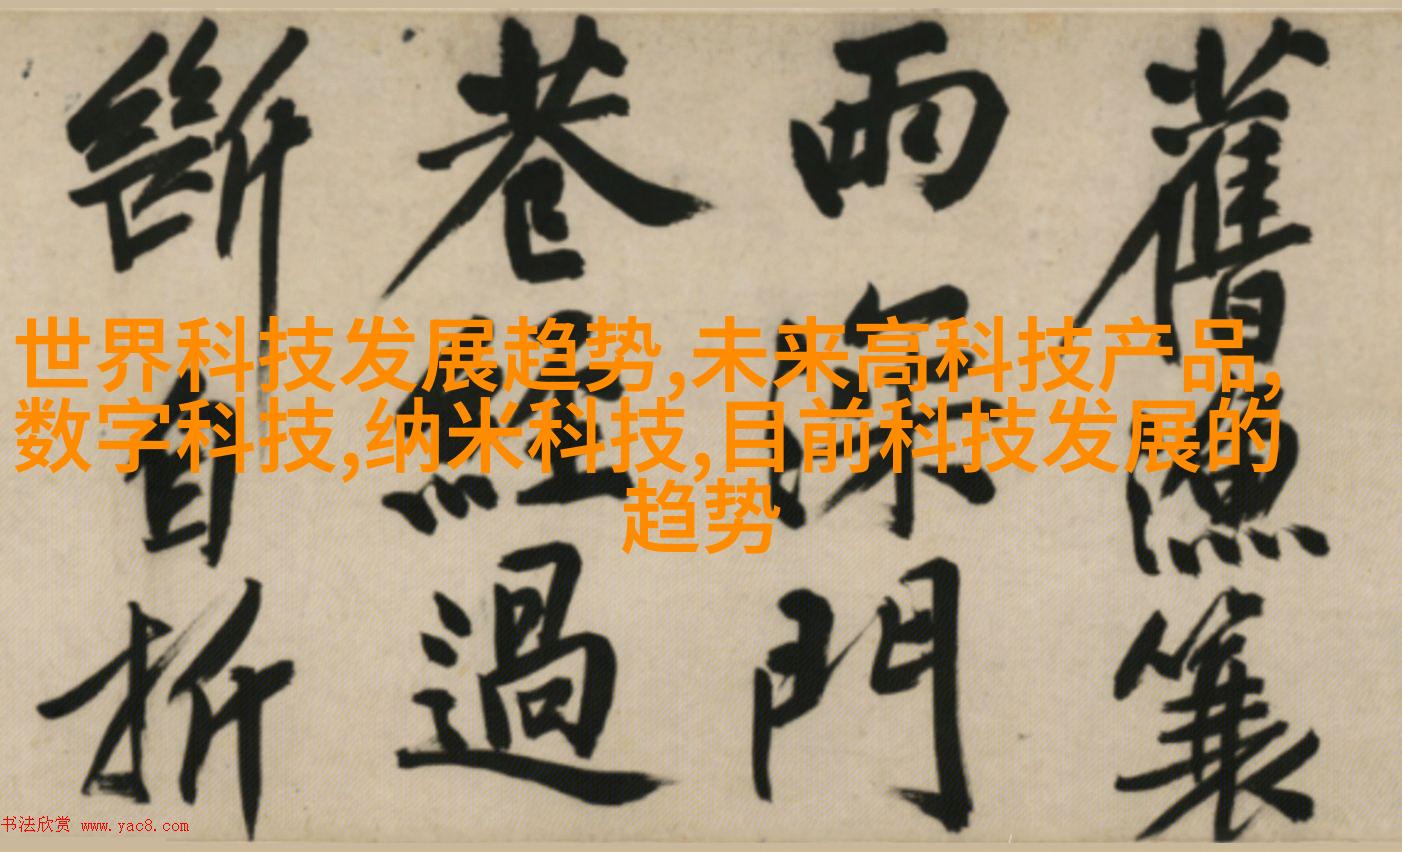 舊漁簑
雨深門
巷經過
斷自折
世界科技发展趋势,未来高科技产品,
数字科技,纳米科技,目前科技发展的
趋势
书法欣赏 www.yac8.com